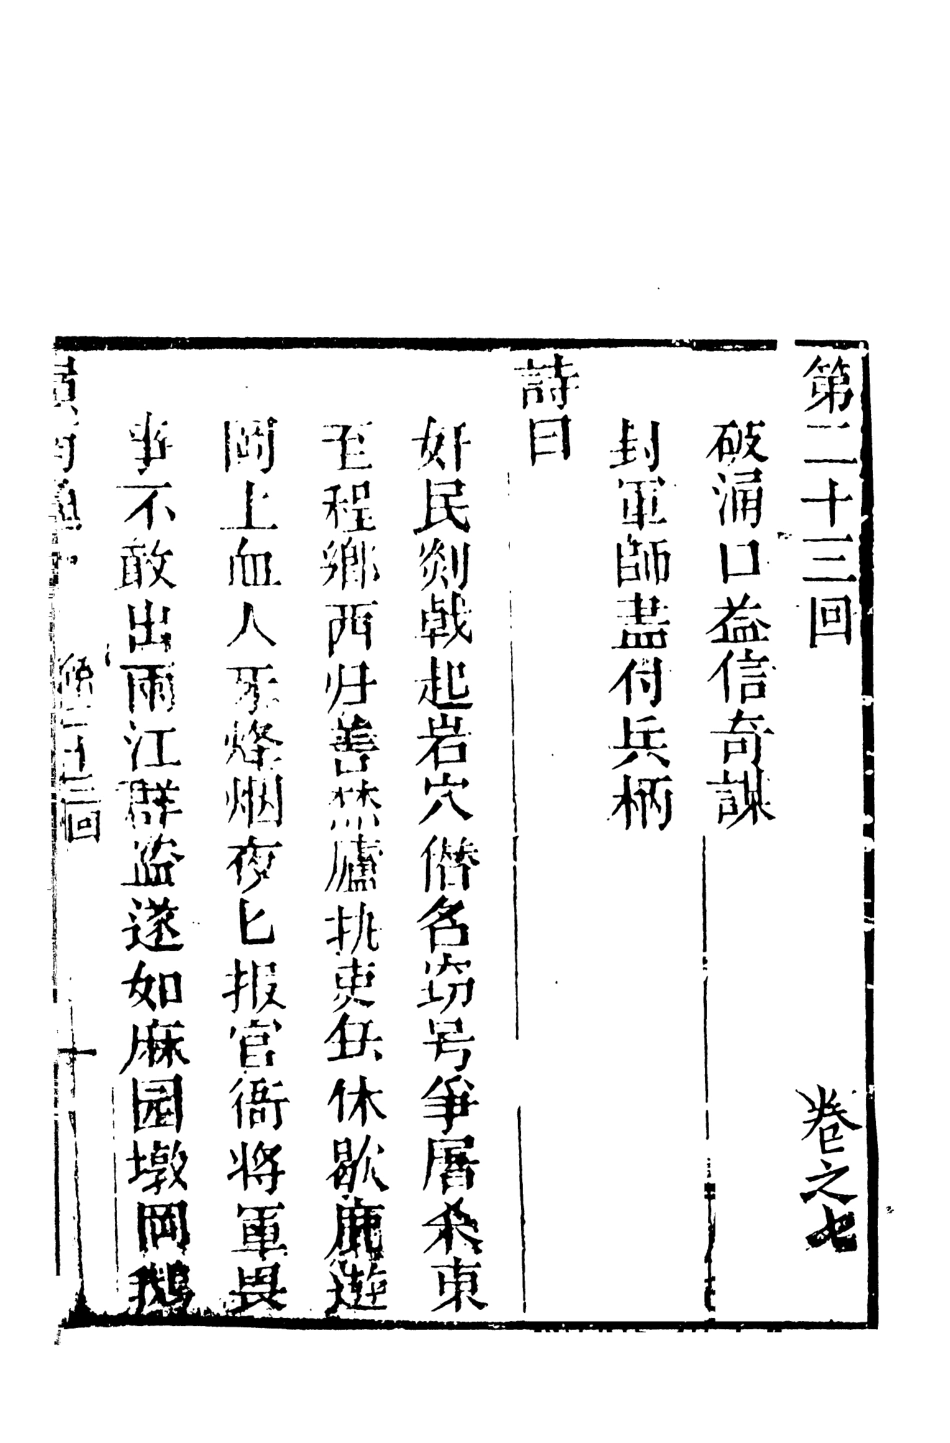 第二十三回 卷之七
破涌口益信奇謀
封軍師盡付兵柄
詩曰
奸民剡戟起岩穴僭名窃号爭屠杀東
至程鄉西归善焚廬挑吏兵休歇鹿遊
岡上血人牙烽烟夜匕报官衙將軍畏
事不敢出兩江群盗遂如麻园墩岡鵝
第二十三回
十